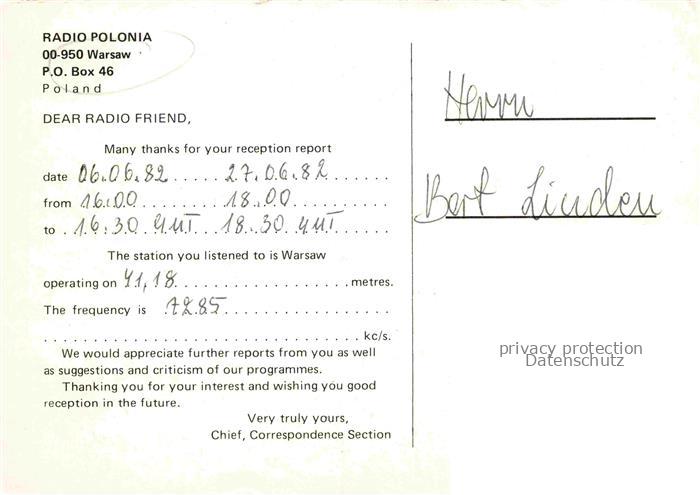 RADIO POLONIA
00-950 Warsaw
P.O. Box 46
Poland
DEAR RADIO FRIEND,
Many thanks for your reception report
date 06.06.82 ..... 27.06.82 ......
from 16.00 ......... 18.00 .........
to . 16.30 GMT .. 18.30 GMT ......
The station you listened to is Warsaw
operating on 41,18 .................... metres.
The frequency is 7285 ................
................................... kc/s.
We would appreciate further reports from you as well
as suggestions and criticism of our programmes.
Thanking you for your interest and wishing you good
reception in the future.
Very truly yours,
Chief, Correspondence Section
Herrn
Bert Linden
privacy protection
Datenschutz